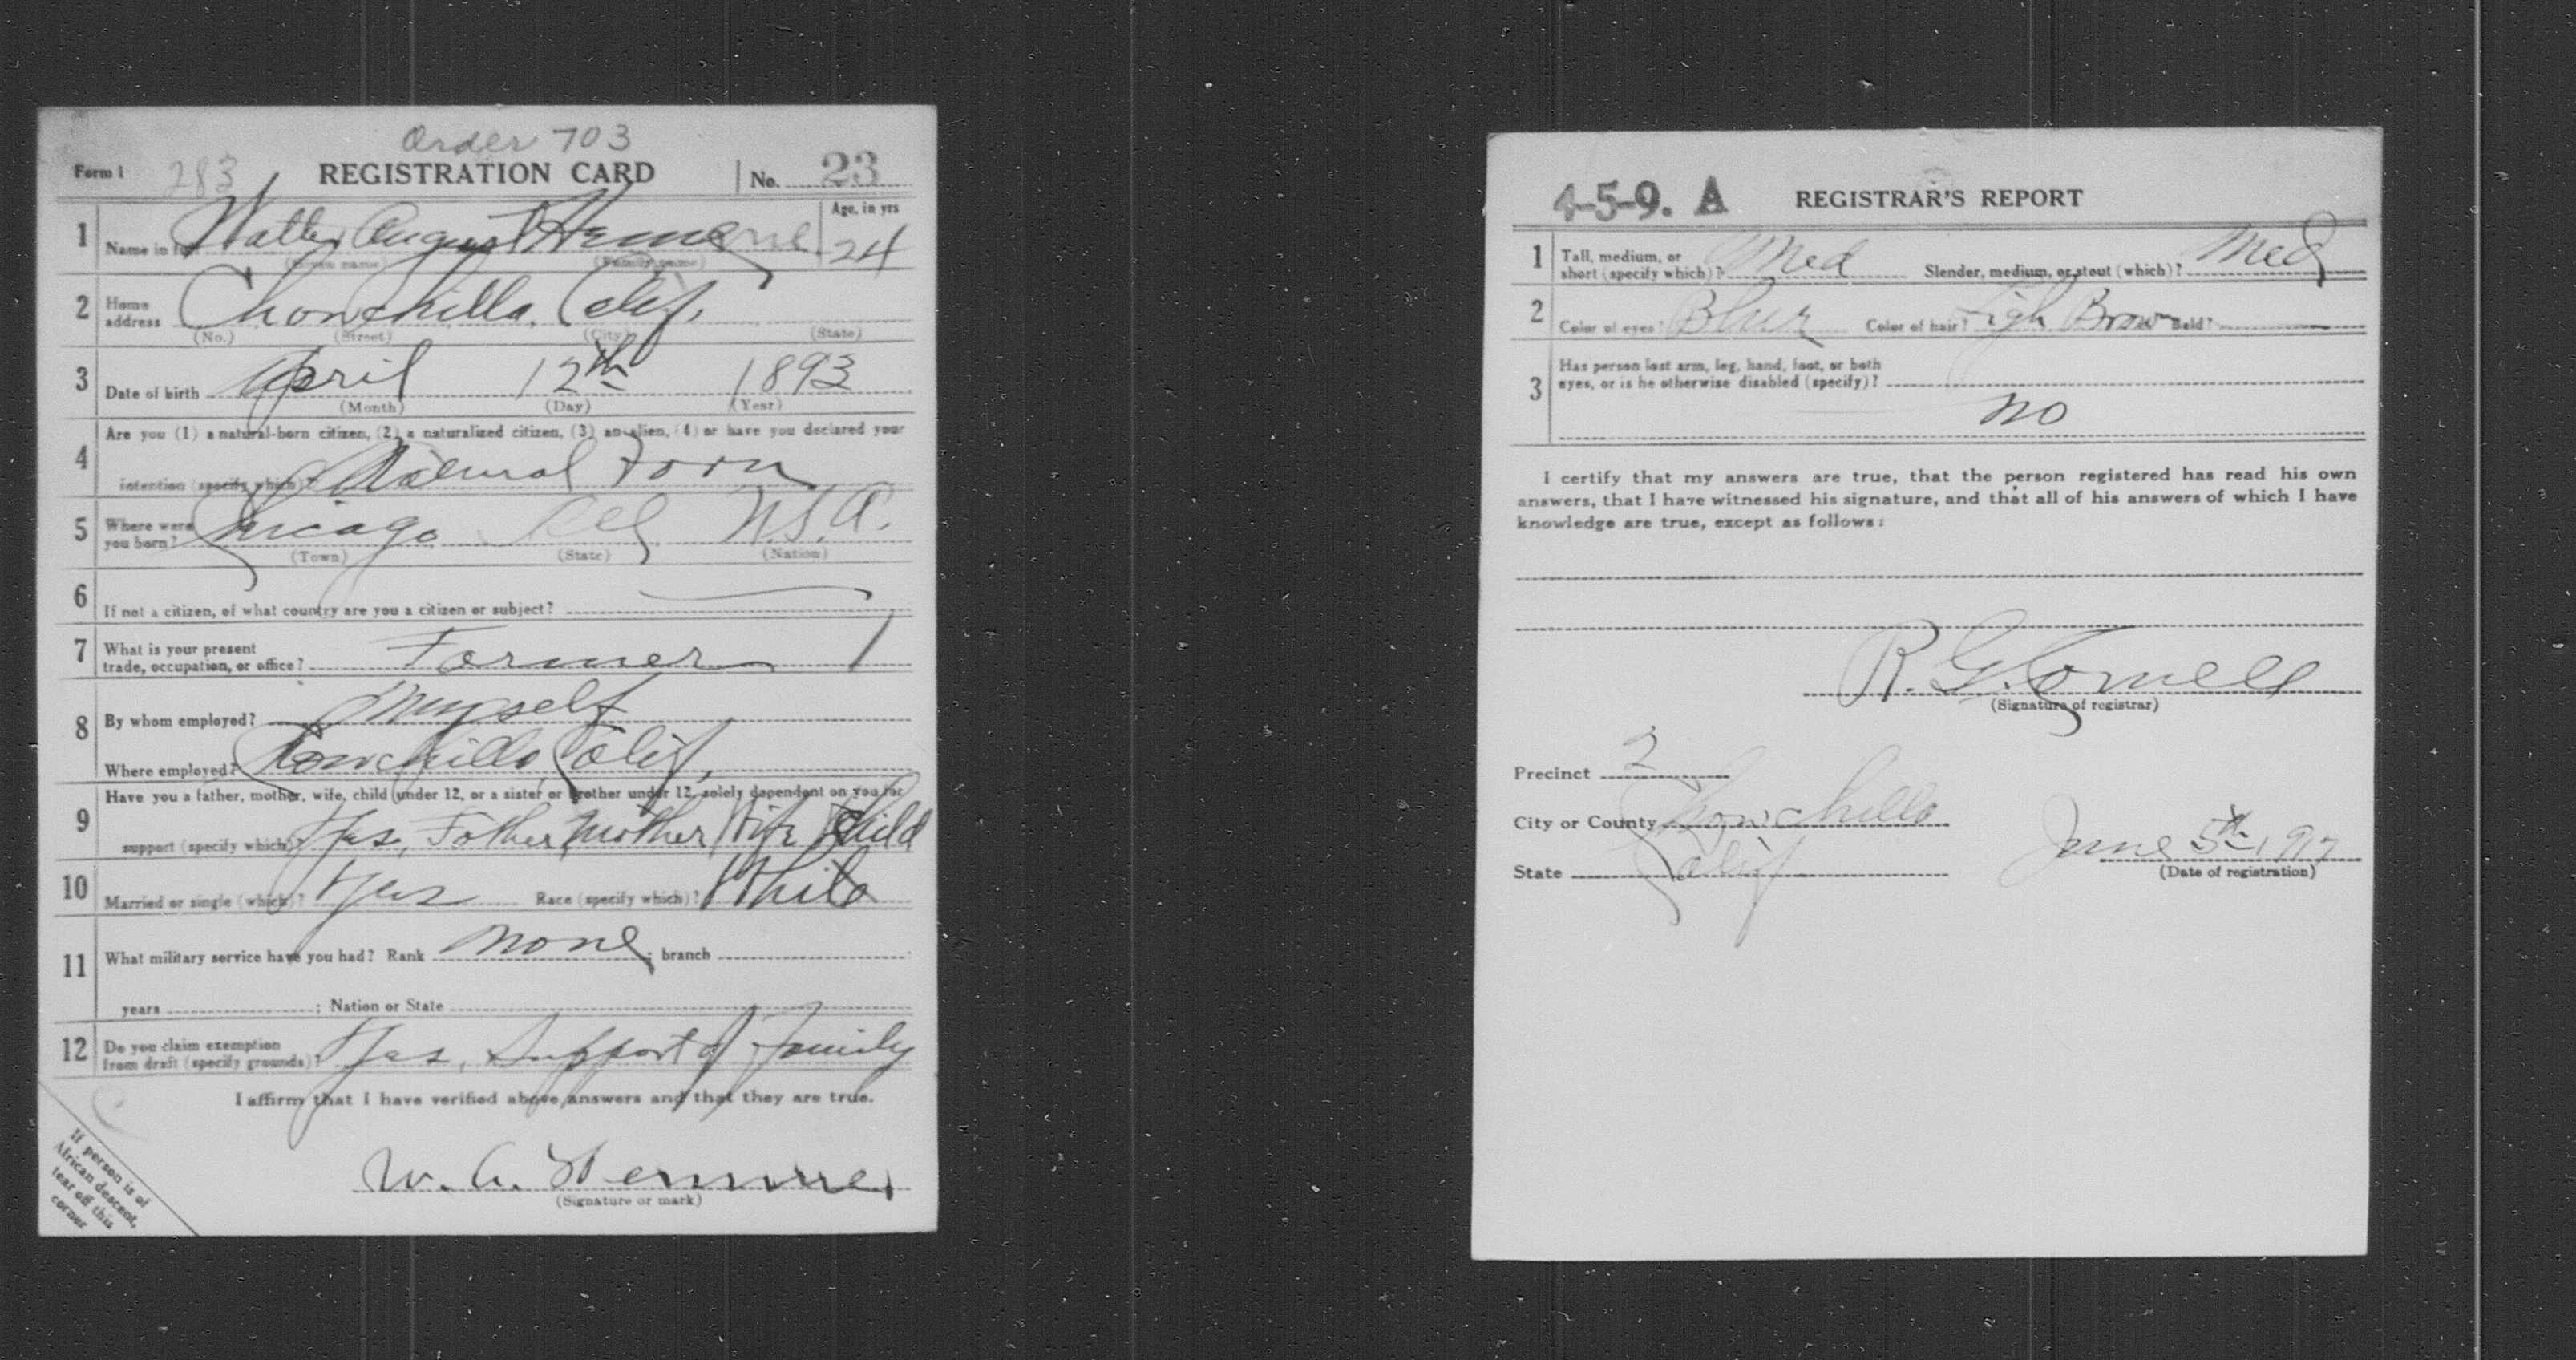 Order 703
Form 1 283 REGISTRATION CARD No. 23
1 Name in full Walter August Age, in yrs 24
(Given name) (Family name)
2 Home address Chowchilla, Calif.
(No.) (Street) (City) (State)
3 Date of birth April 12th 1893
(Month) (Day) (Year)
4 Are you (1) a natural-born citizen, (2) a naturalized citizen, (3) an alien, (4) or have you declared your
intention (specify which)? Natural born
5 Where were you born? Chicago Ill U.S.A.
(Town) (State) (Nation)
6 If not a citizen, of what country are you a citizen or subject?
7 What is your present trade, occupation, or office? Farmer 1
8 By whom employed? Myself
Where employed? Chowchilla, Calif,
9 Have you a father, mother, wife, child under 12, or a sister or brother under 12, solely dependent on you for
support (specify which)? Yes, Father, Mother, Wife Child
10 Married or single (which)? Yes Race (specify which)? White
11 What military service have you had? Rank None; branch
years ; Nation or State
12 Do you claim exemption from draft (specify grounds)? Yes, Support of Family
I affirm that I have verified above answers and that they are true.
W. A.
(Signature or mark)
If person is of
African descent,
tear off this
corner
4-5-9. A REGISTRAR'S REPORT
1 Tall, medium, or short (specify which)? Med Slender, medium, or stout (which)? Med
2 Color of eyes? Blue Color of hair? Ligh Brown Bald?
3 Has person lost arm, leg, hand, foot, or both
eyes, or is he otherwise disabled (specify)?
no
I certify that my answers are true, that the person registered has read his own
answers, that I have witnessed his signature, and that all of his answers of which I have
knowledge are true, except as follows:
R. G.
(Signature of registrar)
Precinct 2
City or County Chowchilla
State Calif June 5th, 1917
(Date of registration)